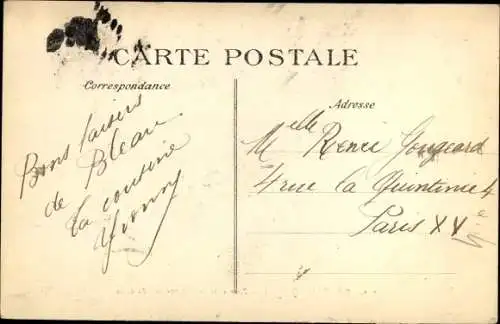 CARTE POSTALE
Correspondance
Bons baisers
de Bleau
ta cousine
Yvonny
Adresse
Melle Renée Gougeard
4 rue la Quintinie 4
Paris XVe